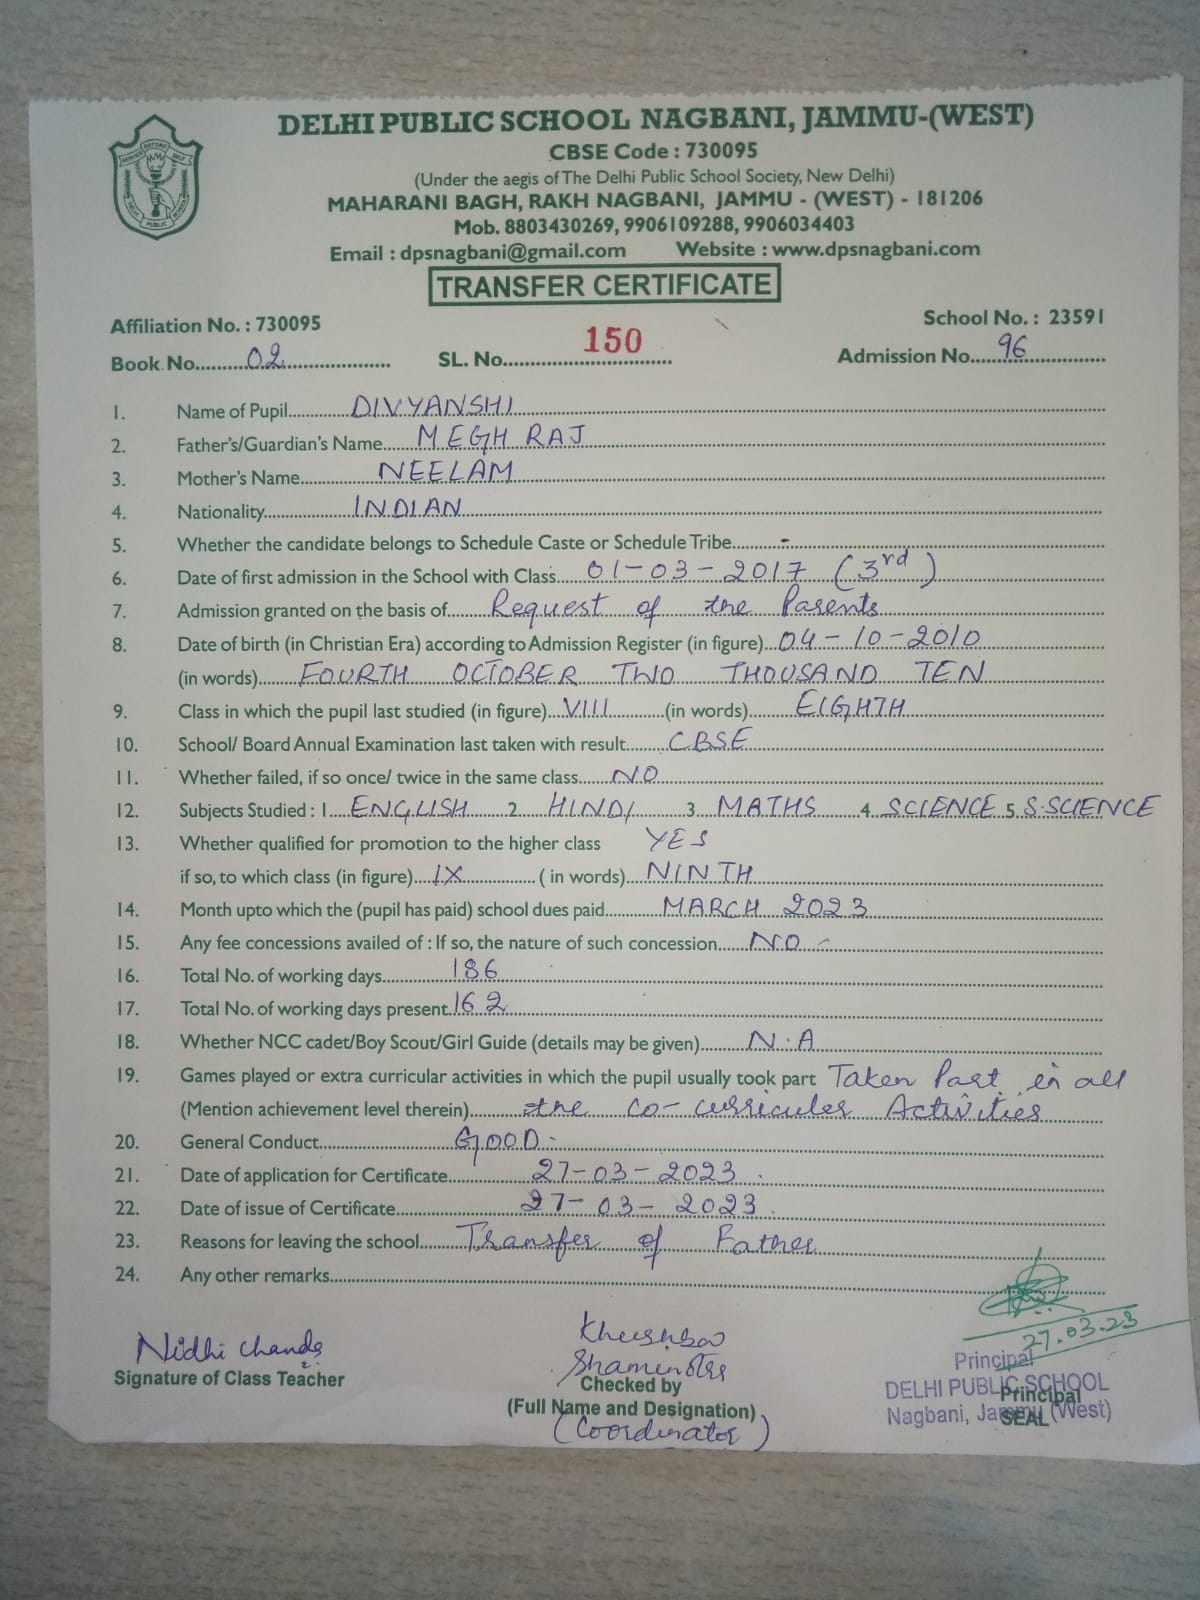 DELHI PUBLIC SCHOOL NAGBANI, JAMMU-(WEST)
CBSE Code : 730095
(Under the aegis of The Delhi Public School Society, New Delhi)
MAHARANI BAGH, RAKH NAGBANI, JAMMU - (WEST) - 181206
Mob. 8803430269, 9906109288, 9906034403
Email : dpsnagbani@gmail.com Website : www.dpsnagbani.com
SERVICE BEFORE SELF
DELHI PUBLIC SCHOOL
TRANSFER CERTIFICATE
Affiliation No. : 730095 School No. : 23591
Book No. 02 SL. No. 150 Admission No. 96
1. Name of Pupil DIVYANSHI
2. Father's/Guardian's Name MEGH RAJ
3. Mother's Name NEELAM
4. Nationality INDIAN
5. Whether the candidate belongs to Schedule Caste or Schedule Tribe -
6. Date of first admission in the School with Class 01-03-2017 (3rd)
7. Admission granted on the basis of Request of the Parents
8. Date of birth (in Christian Era) according to Admission Register (in figure) 04-10-2010
(in words) FOURTH OCTOBER TWO THOUSAND TEN
9. Class in which the pupil last studied (in figure) VIII (in words) EIGHTH
10. School/ Board Annual Examination last taken with result CBSE
11. Whether failed, if so once/ twice in the same class NO
12. Subjects Studied : 1. ENGLISH 2. HINDI 3. MATHS 4. SCIENCE 5. S.SCIENCE
13. Whether qualified for promotion to the higher class YES
if so, to which class (in figure) IX (in words) NINTH
14. Month upto which the (pupil has paid) school dues paid MARCH 2023
15. Any fee concessions availed of : If so, the nature of such concession NO -
16. Total No. of working days 186
17. Total No. of working days present 162
18. Whether NCC cadet/Boy Scout/Girl Guide (details may be given) N.A
19. Games played or extra curricular activities in which the pupil usually took part Taken Part in all
(Mention achievement level therein) the co-curricular Activities
20. General Conduct GOOD -
21. Date of application for Certificate 27-03-2023 .
22. Date of issue of Certificate 27-03-2023 .
23. Reasons for leaving the school Transfer of Father
24. Any other remarks
27.03.23
Nidhi
Signature of Class Teacher
Checked by
(Full Name and Designation)
(Coordinator)
Principal
DELHI PUBLIC SCHOOL
Nagbani, Jammu (West)
Principal
SEAL